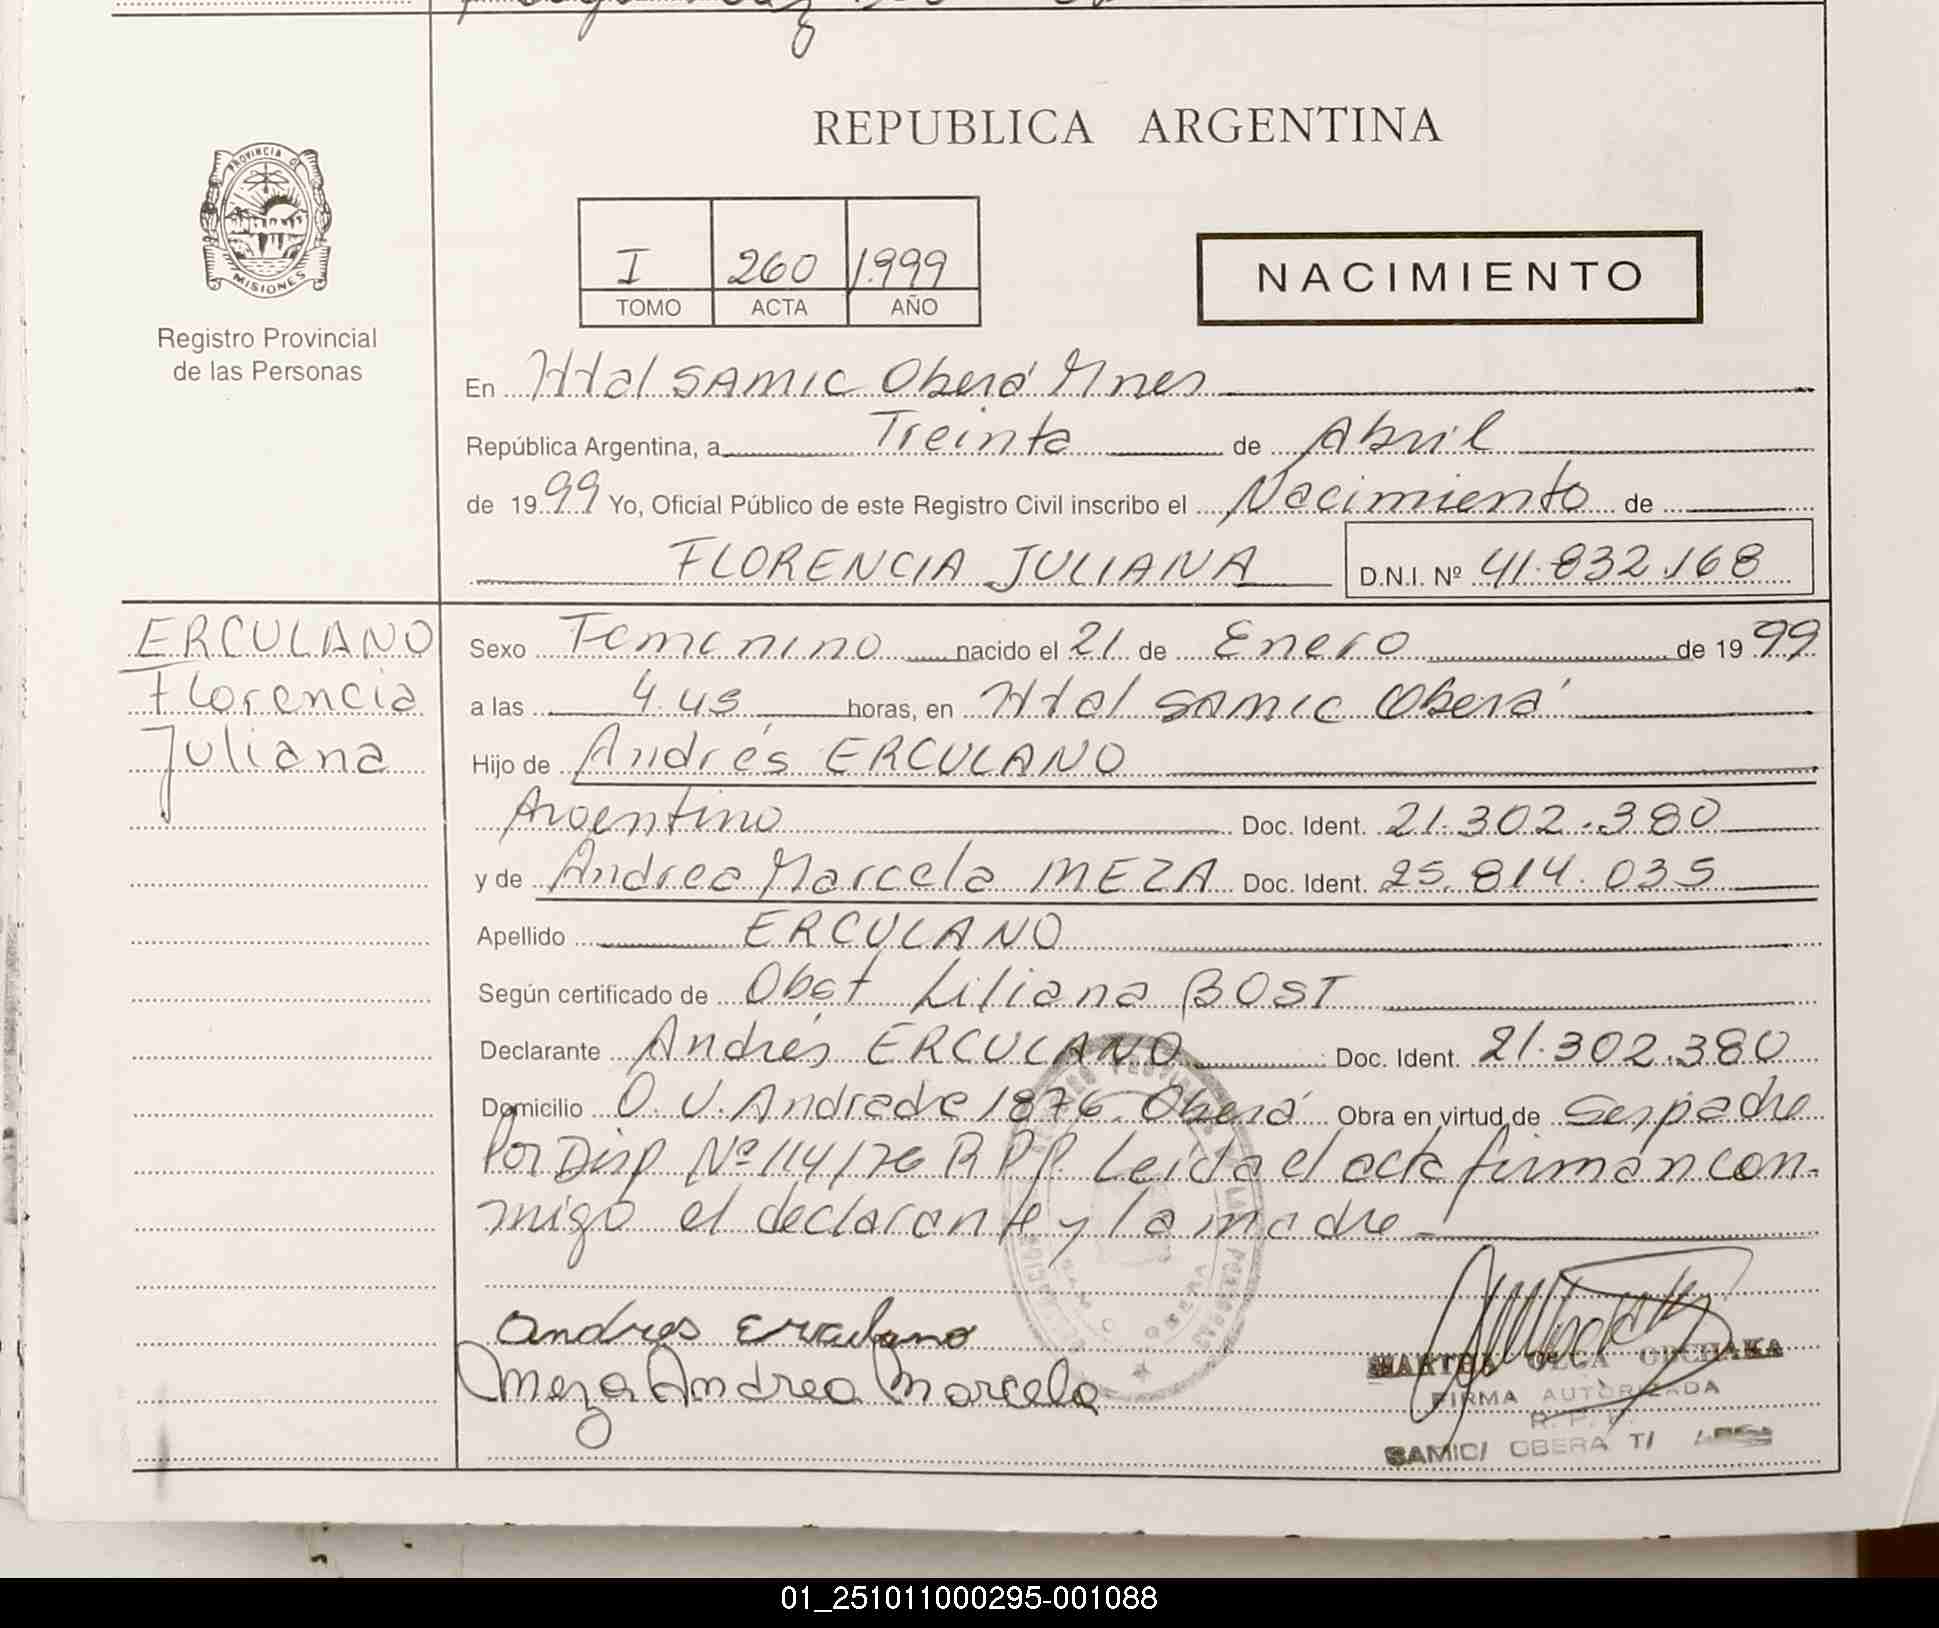 REPUBLICA ARGENTINA
PROVINCIA D
MISIONES
Registro Provincial
de las Personas
I 260 1.999
TOMO ACTA AÑO
NACIMIENTO
En Htal SAMIC Oberá Mnes
República Argentina, a Treinta de Abril
de 1999 Yo, Oficial Público de este Registro Civil inscribo el Nacimiento de
FLORENCIA JULIANA D.N.I. Nº 41.832.168
ERCULANO
Florencia
Juliana
Sexo Femenino nacido el 21 de Enero de 1999
a las 4.45 horas, en Htal SAMIC Oberá
Hijo de Andrés ERCULANO
Argentino Doc. Ident. 21.302.380
y de Andrea Marcela MEZA Doc. Ident. 25.814.035
Apellido ERCULANO
Según certificado de Obst Liliana BOST
Declarante Andrés ERCULANO Doc. Ident. 21.302.380
Domicilio O.V. Andrade 1876. Oberá Obra en virtud de Ser padre
Por Disp Nº 114/76 R.P.P. Leída el acta firman con-
migo el declarante y la madre
Andres Erculano
Meza Andrea Marcela
MARTHA OLGA
FIRMA AUTORIZADA
SAMIC/ OBERA
01_251011000295-001088